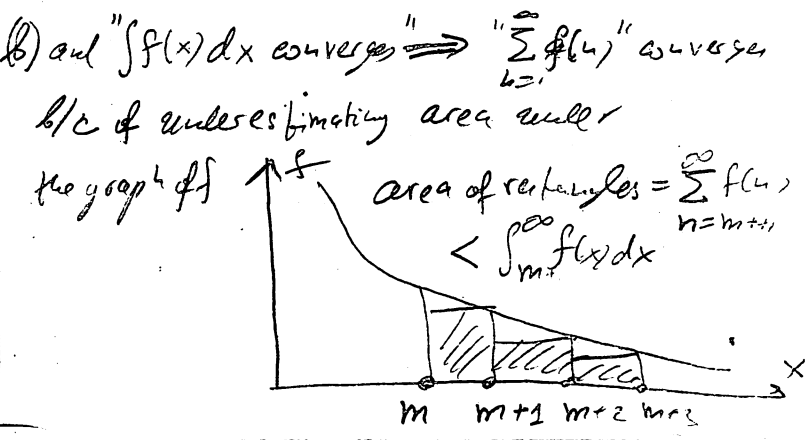 b) and "∫f(x)dx converges" ⟹ "∑_{n=1}^{∞} f(n)" converges
b/c of underestimating area under
the graph of f
f
area of rectangles = ∑_{n=m+1}^{∞} f(n)
< ∫_{m}^{∞} f(x)dx
x
m m+1 m+2 m+3